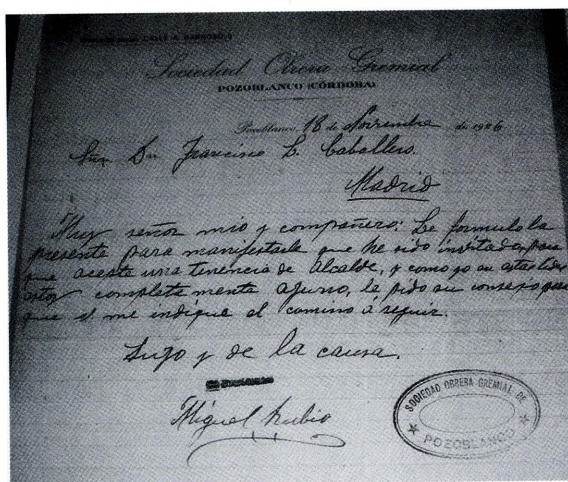 CALLE A. BARROSO, 5
Sociedad Obrera Gremial
POZOBLANCO (CÓRDOBA)
Pozoblanco 18 de Noviembre de 1926
Snr. Dn Francisco L. Caballero.
Madrid
Muy señor mio y compañero: Le formulo la
presente para manifestarle que he sido invitado, para
que acepte una tenencia de Alcalde, y como yo en
estoy completamente ajeno, le pido su consejo para
que el me indique el camino á seguir.
Suyo y de la causa.
Miguel Rubio
SOCIEDAD OBRERA GREMIAL DE
POZOBLANCO